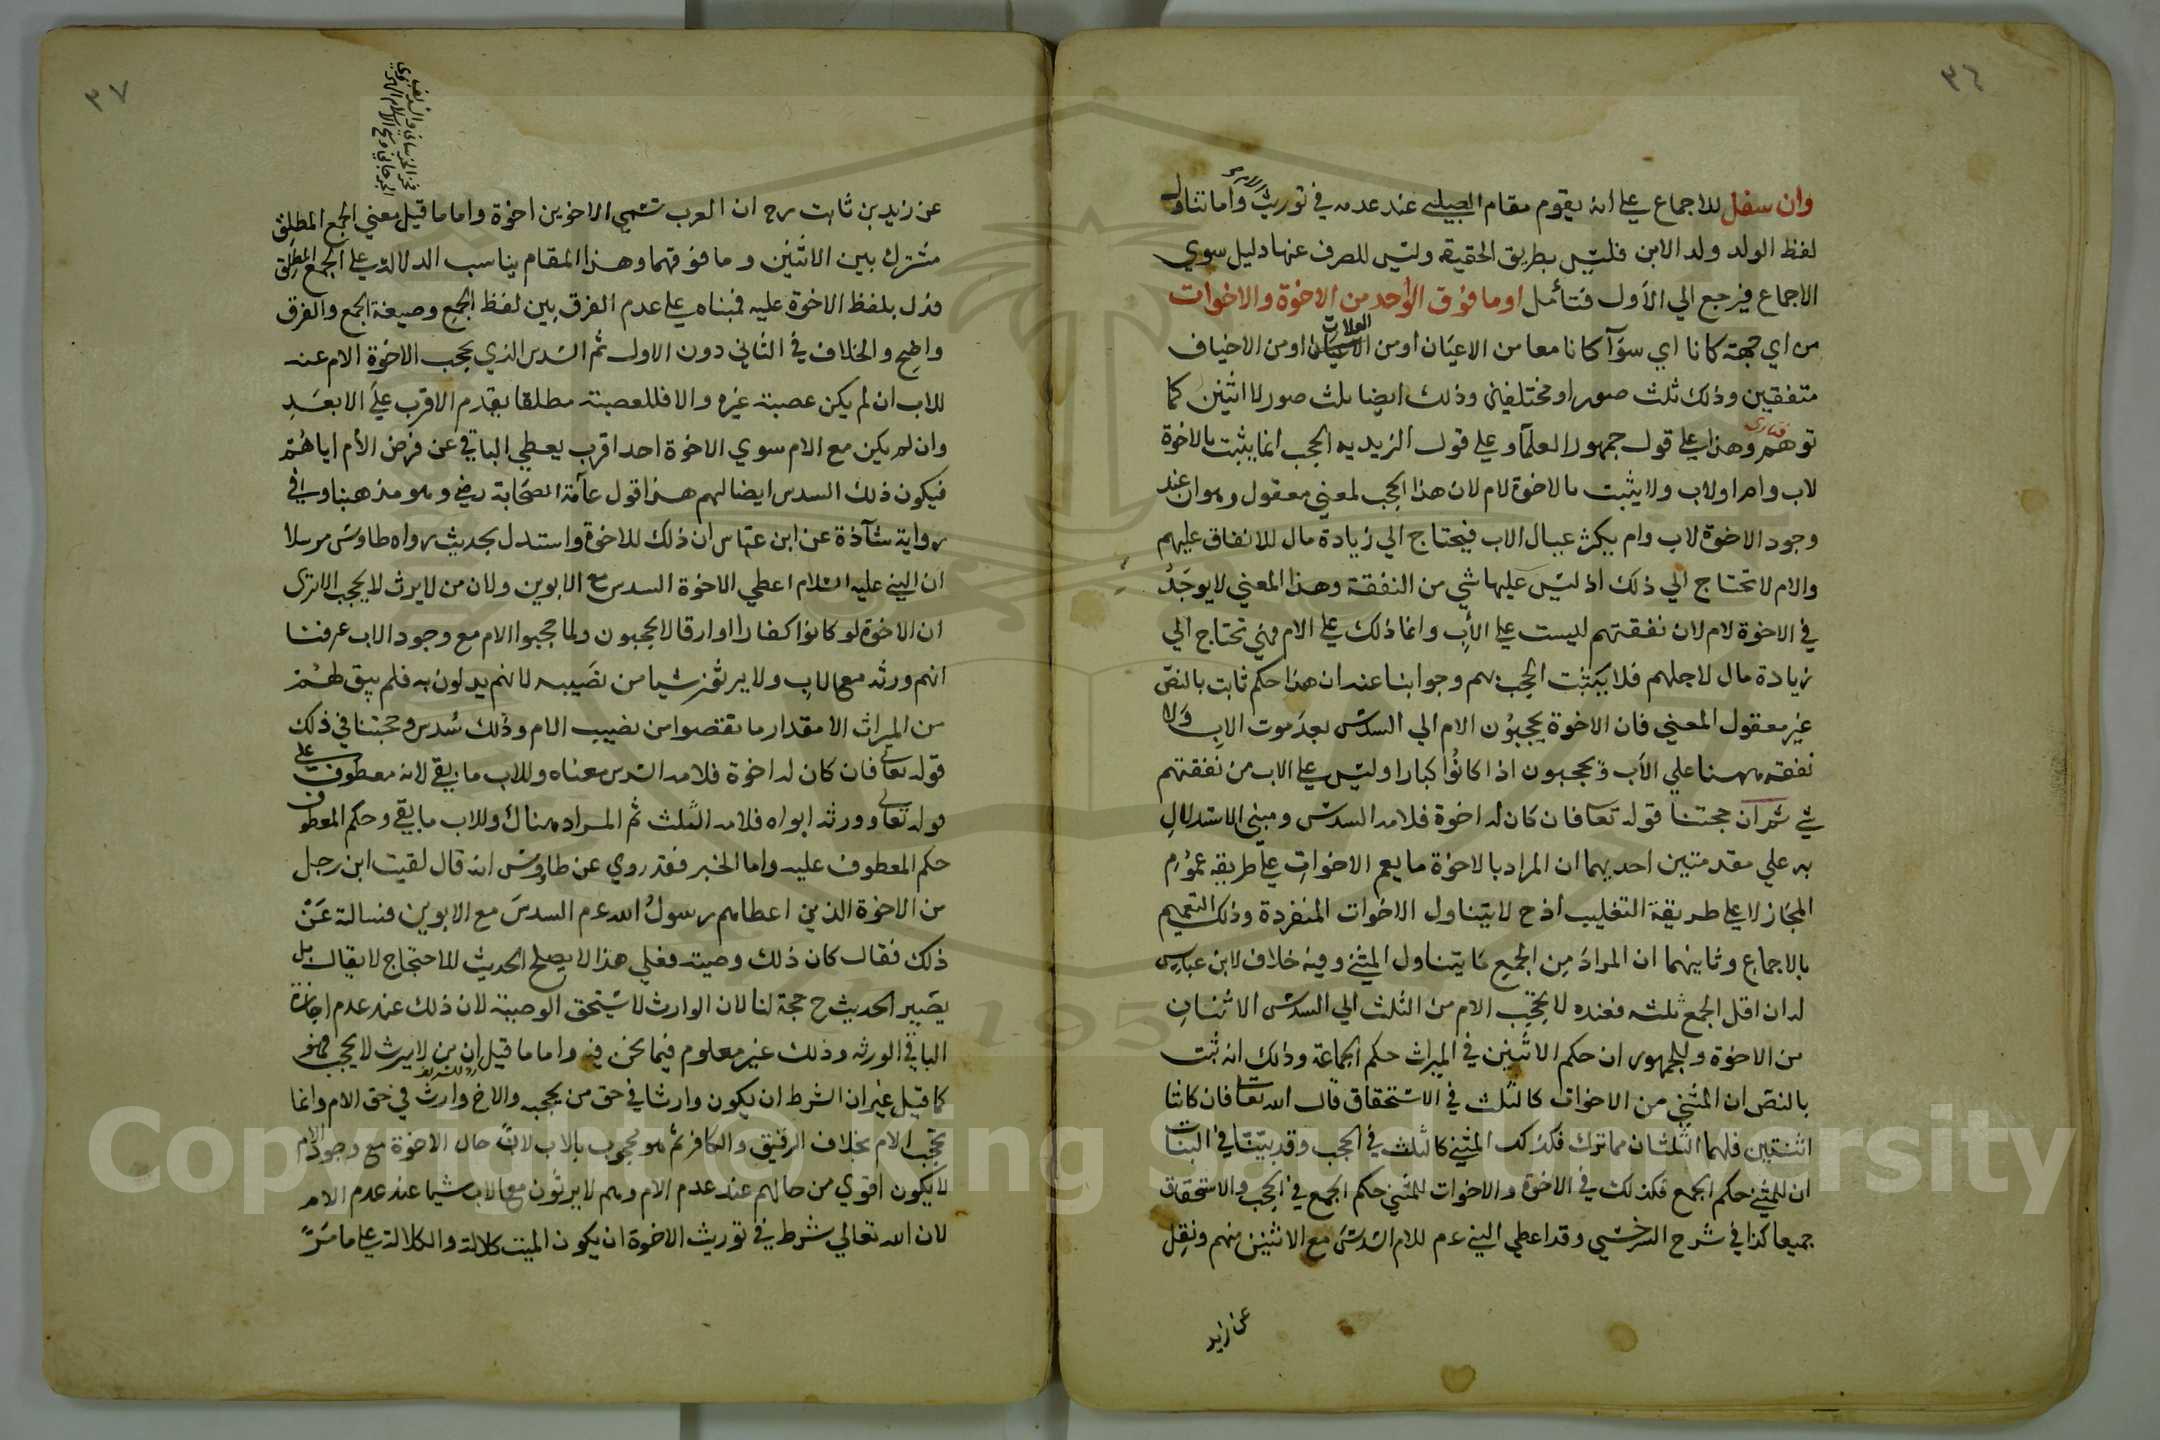 ٣٦
وان سفل للاجماع على انه يقوم مقام الصلبى عند عدمه في توريث الام وأما تناول
لفظ الولد ولد الابن فليس بطريق الحقيقة وليس للصرف عنها دليل سوي
الاجماع فيرجع الي الأول فتأمل او ما فوق الواحد من الاخوة والاخوات
من اي جهة كانا اي سوآ كانا معا من الاعيان او من العلات او من الاخياف
متفقين وذلك ثلث صور او مختلفين وذلك ايضا ثلث صور لا اثنين كما
توهم وهذا على قول جمهور العلمآ وعلى قول الزيدية الحجب انما يثبت بالاخوة
لاب وام او لاب ولا يثبت بالاخوة لام لان هذا الحجب لمعني معقول وهو ان عند
وجود الاخوة لاب وام يكثر عيال الاب فيحتاج الي زيادة مال للانفاق عليهم
والام لا تحتاج الي ذلك اذ ليس عليها شي من النفقة وهذا المعني لا يوجد
في الاخوة لام لان نفقتهم ليست على الأب وانما ذلك على الام فهي تحتاج الي
زيادة مال لاجلهم فلا يثبت الحجب بهم وجوابنا عنه ان هذا حكم ثابت بالنص
غير معقول المعني فان الاخوة يحجبون الام الي السدس بعد موت الاب ولا
نفقة ههنا علي الأب ويحجبون اذا كانوا كبارا وليس على الاب من نفقتهم
شي ثم ان حجتنا قوله تعا فان كان له اخوة فلامه السدس ومبنى الاستدلال
به علي مقدمتين احديهما ان المراد بالاخوة ما يعم الاخوات على طريقة عموم
المجاز لا على طريقة التغليب اذ ح لا يتناول الاخوات المنفردة وذلك التعميم
بالاجماع وثانيهما ان المراد من الجمع ما يتناول المثني وفيه خلاف لابن عباس
له ان اقل الجمع ثلثه فعنده لا يحجب الام من الثلث الي السدس الاثنان
من الاخوة وللجمهور ان حكم الاثنين في الميراث حكم الجماعة وذلك انه ثبت
بالنص ان المثني من الاخوات كالثلث في الاستحقاق قال الله تعا فان كانتا
اثنتين فلهما الثلثان مما ترك فكذلك المثني كالثلث في الحجب وقد بيّنّا في البنات
ان للمثني حكم الجمع فكذلك في الاخوة والاخوات للمثني حكم الجمع في الحجب والاستحقاق
جميعا كذا في شرح السرخسي وقد اعطي النبي عم للام السدس مع الاثنين منهم ونقل
عن زيد
٣٧
عن زيد بن ثابت رح ان العرب تسمي الاخوين اخوة واما ما قيل معني الجمع المطلق
مشترك بين الاثنين وما فوقهما وهذا المقام يناسب الدلالة على الجمع المطلق
فدل بلفظ الاخوة عليه فمبناه على عدم الفرق بين لفظ الجمع وصيغة الجمع والفرق
واضح والخلاف في الثاني دون الاول ثم السدس الذي يحجب الاخوة الام عنه
للاب ان لم يكن عصبة غيره والا فللعصبة مطلقا يقدم الاقرب علي الابعد
وان لم يكن مع الام سوي الاخوة احد اقرب يعطي الباقي عن فرض الأم اياهم
فيكون ذلك السدس ايضا لهم هذا قول عآمة الصحابة رضي وهو مذهبنا وفي
رواية شآذة عن ابن عباس ان ذلك للاخوة واستدل بحديث رواه طاوس مرسلا
ان النبي عليه السلام اعطي الاخوة السدس مع الابوين ولان من لا يرث لا يحجب الا ترى
ان الاخوة لو كانوا كفارا او ارقا لا يحجبون ولما حجبوا الام مع وجود الاب عرفنا
انهم ورثه مع الاب ولا يرثون شيا من نصيبه لانهم يدلون به فلم يبق لهم
من الميراث الا مقدار ما نقصوا من نصيب الام وذلك سدس وحجتنا في ذلك
قوله تعالى فان كان له اخوة فلامه السدس معناه وللاب ما بقي لانه معطوف على
قوله تعالى وورثه ابواه فلامه الثلث ثم المراد هناك وللاب ما بقي وحكم المعطوف
حكم المعطوف عليه واما الخبر فقد روي عن طاوس انه قال لقيت ابن رجل
من الاخوة الذين اعطاهم رسول الله عم السدس مع الابوين فسالته عن
ذلك فقال كان ذلك وصية فعلي هذا لا يصلح الحديث للاحتجاج لا يقال بل
يصير الحديث ح حجة لنا لان الوارث لا يستحق الوصية لان ذلك عند عدم اجازة
الباقي الورثه وذلك غير معلوم فيما نحن فيه واما ما قيل ان من لا يرث لا يحجب فهو
كما قيل غير ان الشرط ان يكون وارثا في حق من يحجبه والاخ وارث في حق الام وانما
تحجب الام بخلاف الرقيق والكافر ثم هو محجوب بالاب لان حال الاخوة مع وجود الام
لا يكون اقوي من حالهم عند عدم الام وهم لا يرثون مع الاب شيا عند عدم الام
لان الله تعالي شرط في توريث الاخوة ان يكون الميت كلالة والكلالة على ما مَرَّ
Copyright © King Saud University
1957